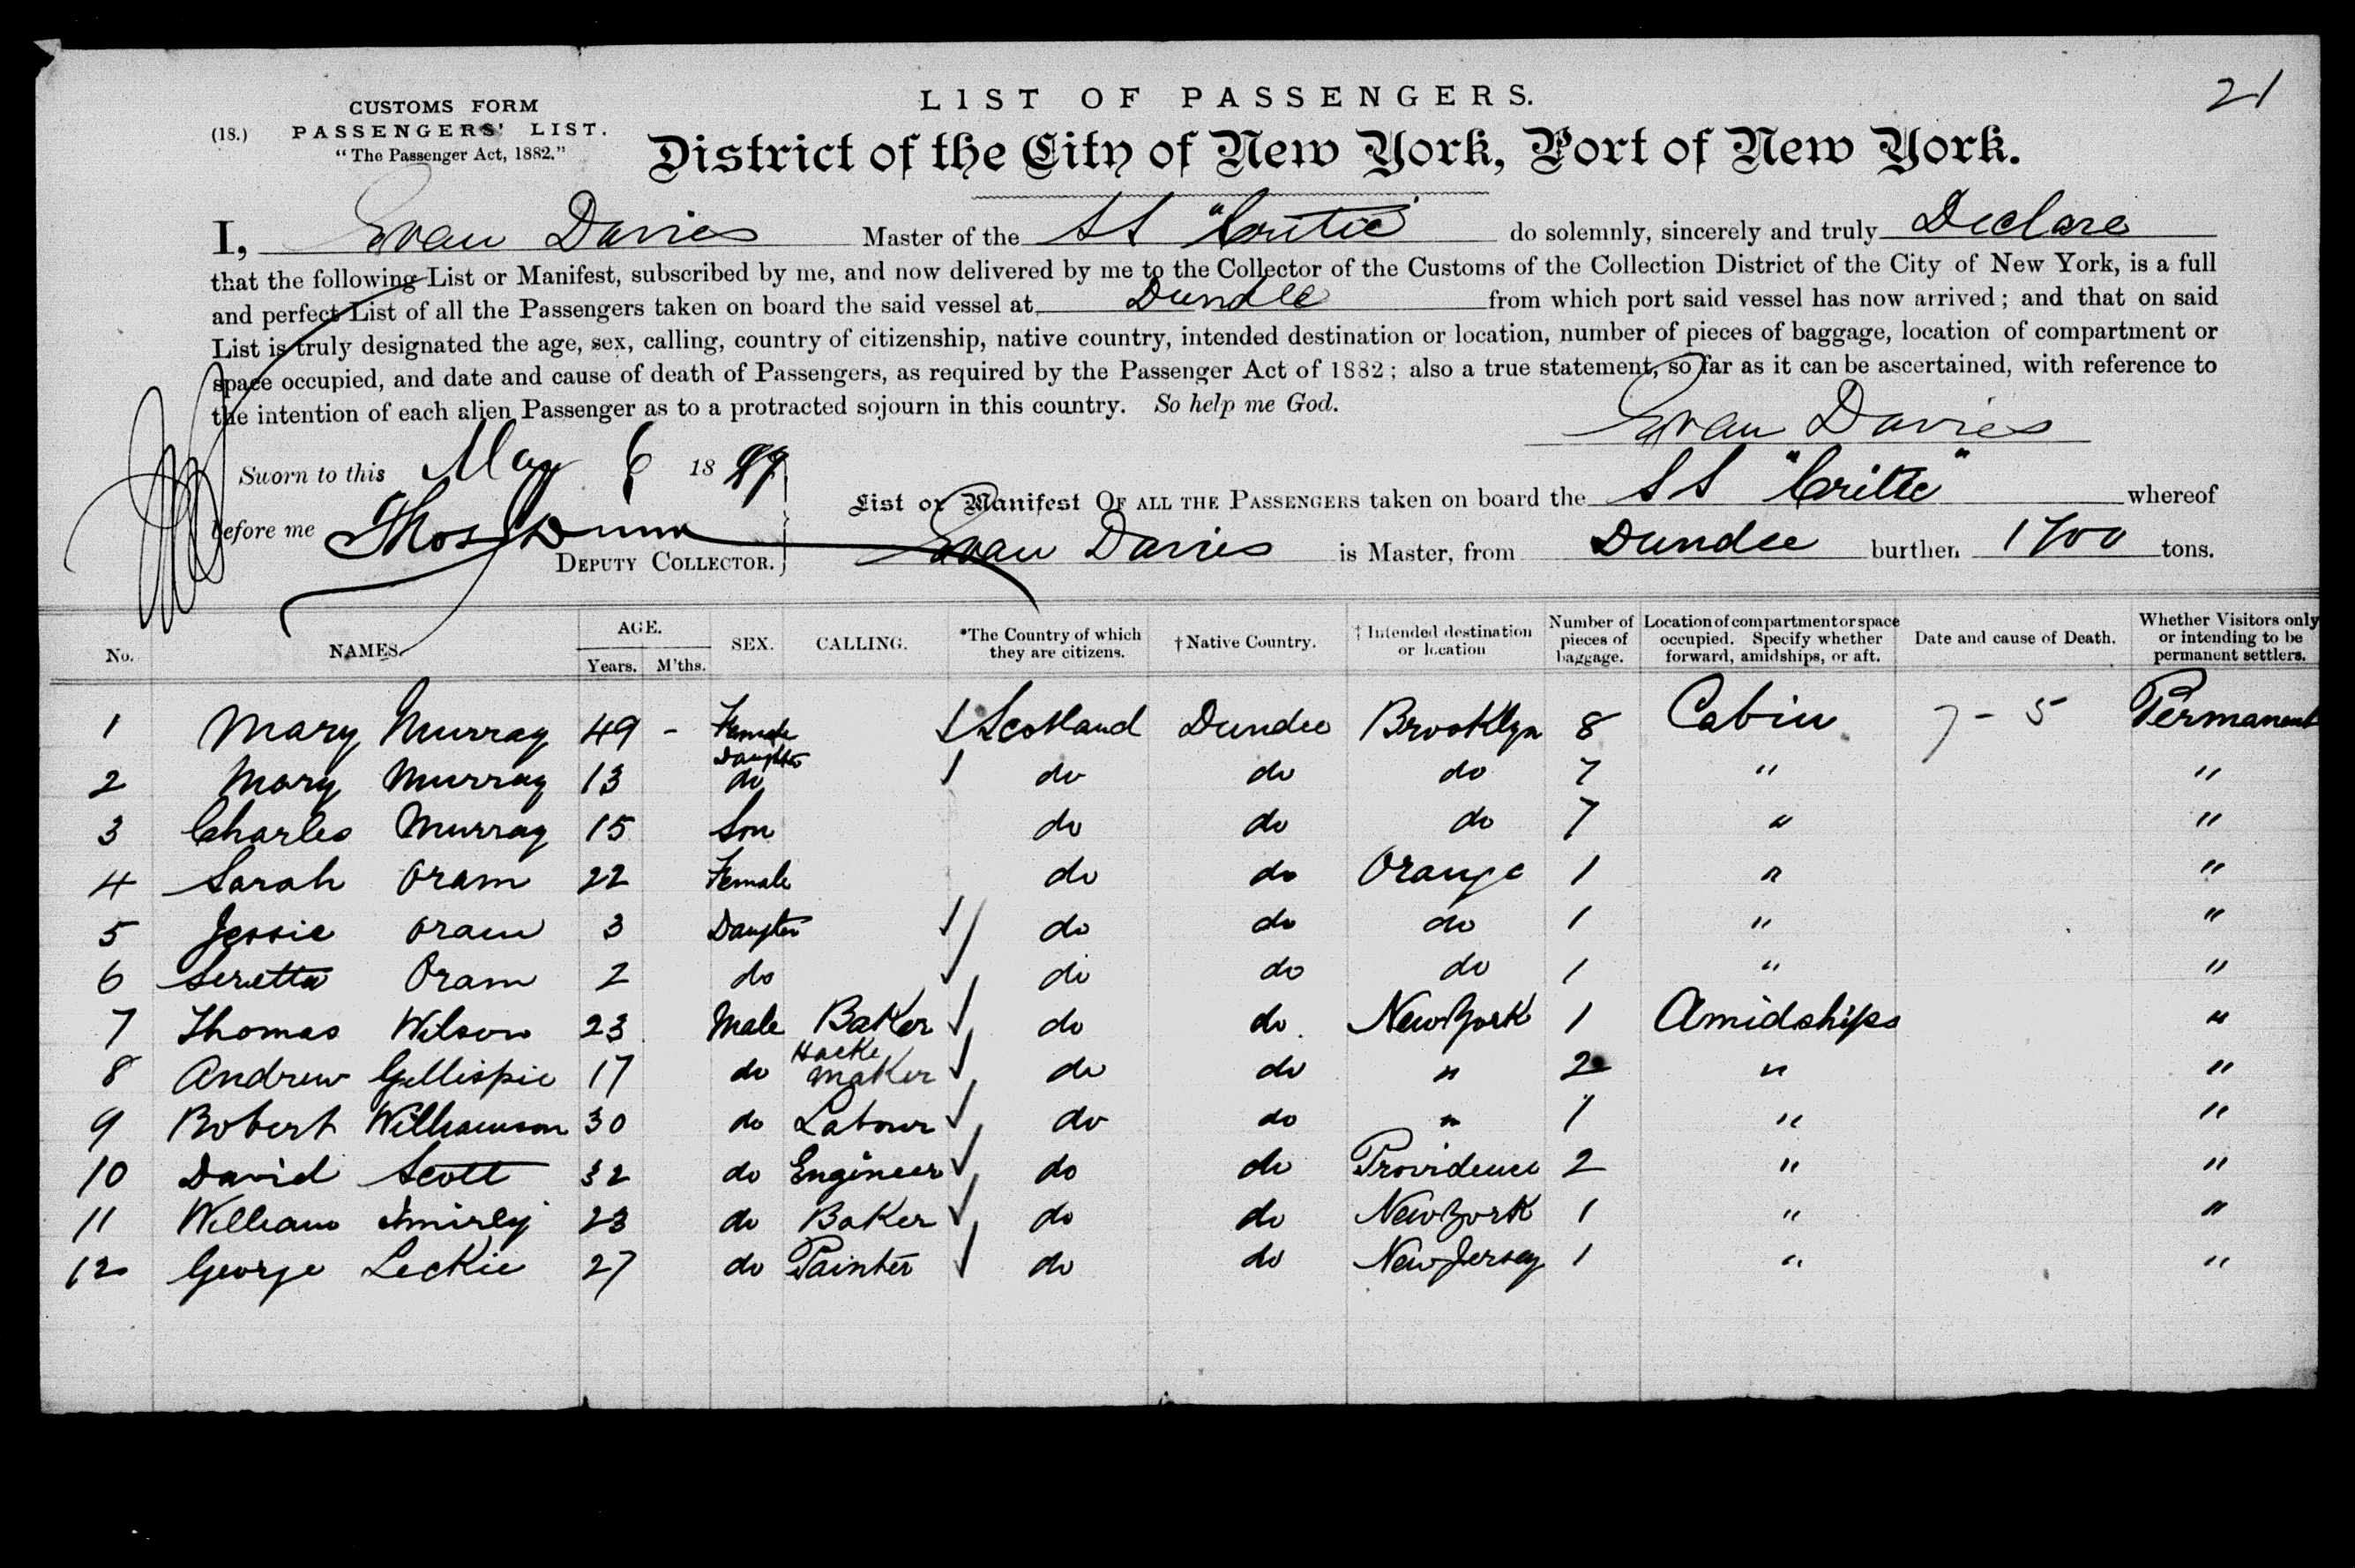 21
CUSTOMS FORM
(18.) PASSENGERS' LIST.
"The Passenger Act, 1882."
LIST OF PASSENGERS.
District of the City of New York, Port of New York.
I, Evan Davies Master of the SS "Critic" do solemnly, sincerely and truly Declare
that the following List or Manifest, subscribed by me, and now delivered by me to the Collector of the Customs of the Collection District of the City of New York, is a full
and perfect List of all the Passengers taken on board the said vessel at Dundee from which port said vessel has now arrived; and that on said
List is truly designated the age, sex, calling, country of citizenship, native country, intended destination or location, number of pieces of baggage, location of compartment or
space occupied, and date and cause of death of Passengers, as required by the Passenger Act of 1882; also a true statement, so far as it can be ascertained, with reference to
the intention of each alien Passenger as to a protracted sojourn in this country. So help me God.
Evan Davies
Sworn to this May 6 1889
before me Thos Dunn
DEPUTY COLLECTOR.
List or Manifest OF ALL THE PASSENGERS taken on board the SS "Critic" whereof
Evan Davies is Master, from Dundee burthen 1700 tons.
No. NAMES. AGE. Years. M'ths. SEX. CALLING. *The Country of which they are citizens. †Native Country. †Intended destination or location Number of pieces of baggage. Location of compartment or space occupied. Specify whether forward, amidships, or aft. Date and cause of Death. Whether Visitors only or intending to be permanent settlers.
1 Mary Murray 49 - Female Scotland Dundee Brooklyn 8 Cabin 7 - 5 Permanent
2 Mary Murray 13 Daughter do do do do 7 " "
3 Charles Murray 15 Son do do do 7 " "
4 Sarah Oram 22 Female do do Orange 1 " "
5 Jessie Oram 3 Daugter do do do 1 " "
6 Seretta Oram 2 do do do do 1 " "
7 Thomas Wilson 23 Male Baker do do New York 1 Amidships "
8 Andrew Gillispie 17 do Hacke maker do do " 2 " "
9 Robert Williamson 30 do Labour do do " 1 " "
10 David Scott 32 do Engineer do do Providence 2 " "
11 William 23 do Baker do do New York 1 " "
12 George Leckie 27 do Painter do do New Jersey 1 " "